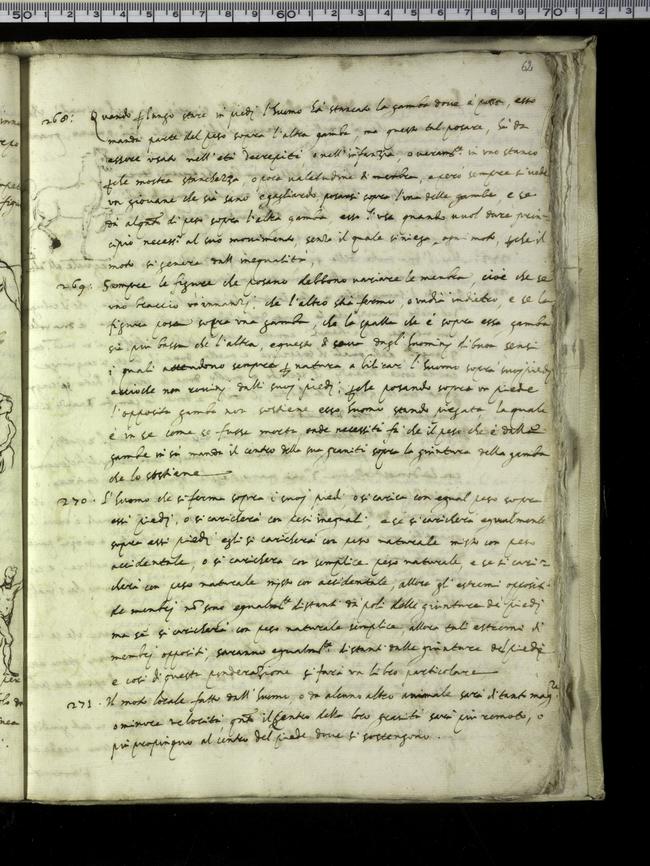 62
268: Quando p lungo stare in piedj l'huomo ha straccato la gamba dove è posa, esso
manda parte del peso sopra l'altra gamba, ma questo tal posare, ha da
essere usato nell'età decrepiti o nell'infanzia, o in uno stanco
pche mostra stanchezza, o poca valetudine di membra, e pero sempre si vede
un giovane che sia sano e gagliardo posarsi sopra l'una delle gambe, e se
dà alqto di peso sopra l'altra gamba esso l'usa quando vuol dare prin-
cipio necess. al suo movimento, senza il quale si niega, ogni moto, pche il
moto si genera dall'inequalità.
269: Sempre le figure che posano debbono variare le membra, cioè che se
uno braccio va innanzj che l'altro stia fermo, o vadia indietro, e se la
figura posa sopra una gamba, che la spalla che è sopra essa gamba
sia più bassa che l'altra, e questo si dagl'huominj di buon sensi
i quali attendono sempre p natura a bilicar l'huomo sopra suoj piedj
accioche non rovinj dalli suoj piedj; pche posando sopra un piede
l'opposita gamba non sostiene esso huomo stando piegata la quale
è in se come se fusse morta onde necessità fà che il peso che è dalle
gambe in sù manda il centro della sua gravità sopra la giuntura della gamba
che lo sostiene
270. L'huomo che si ferma sopra i suoj piedi o si carica con equal peso sopra
essi piedj, o si caricherà con pesi inequali, e se si caricherà equalmente
sopra essi piedj egli si caricherà con peso naturale misto con peso
accidentale, o si caricherà con semplice peso naturale, e se si cari-
cherà con peso naturale misto con accidentale, allora gl'estremi oppositi
de membrj nō sono equalmte distanti dà poli delle giunture de piedj
ma se si caricherà con peso naturale semplice, allora tali estremi di
membrj oppositi, saranno equalmte distanti dalle giunture del piede
e così di questa ponderazione si farà un libro particolare
271. Il moto locale fatto dall'huomo, o da alcuno altro animale sarà di tanta mag.re
o minore velocità qnto il centro della loro gravità sarà più remoto, o
più propinquo al centro del piede dove si sostengono.